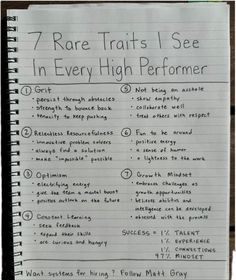 7 Rare Traits I See
In Every High Performer
1 Grit
• persist through obstacles
• strength to bounce back
• tenacity to keep pushing
2 Relentless Resourcefulness
• innovative problem solvers
• always find a solution
• make "impossible" possible
3 Optimism
• electrifying energy
• give the team a moral boost
• positive outlook on the future
4 Constant Learning
• seek feedback
• expand their skills
• are curious and hungry
5 Not being an asshole
• show empathy
• collaborate well
• treat others with respect
6 Fun to be around
• positive energy
• a sense of humor
• a lightness to the work
7 Growth Mindset
• embraces challenges as
growth opportunities
• believes abilities and
intelligence can be developed
• obsessed with the process
SUCCESS = 1% TALENT
1% EXPERIENCE
1% CONNECTIONS
97% MINDSET
Want systems for hiring? Follow Matt Gray.